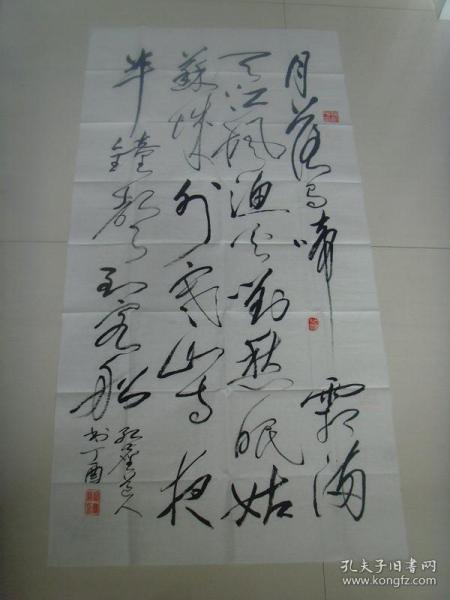 月落烏啼霜滿
天江楓漁火對愁眠姑
蘇城外寒山寺夜
半鐘聲到客船
道人
书丁酉
孔夫子旧书网
www.kongfz.com